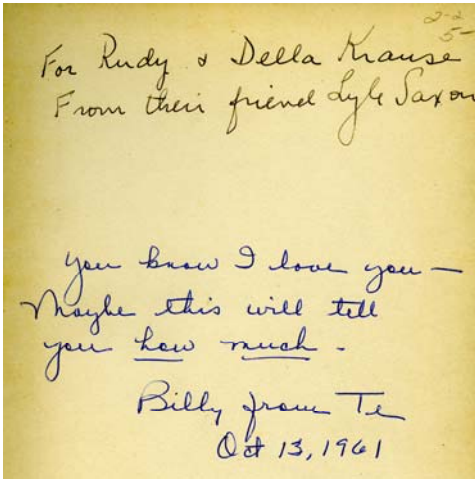 2-2
5-
For Rudy & Della Krause
From their friend Lyle Saxon
You know I love you —
Maybe this will tell
you how much -
Billy from Te
Oct 13, 1961